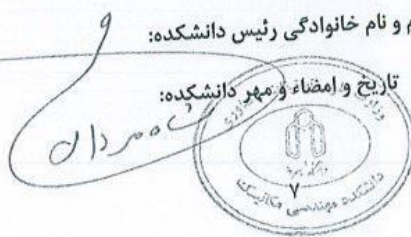 م و نام خانوادگی رئیس دانشکده:
تاریخ و امضاء و مهر دانشکده:
شاهمردان
دانشکده مهندسی مکانیک
۷